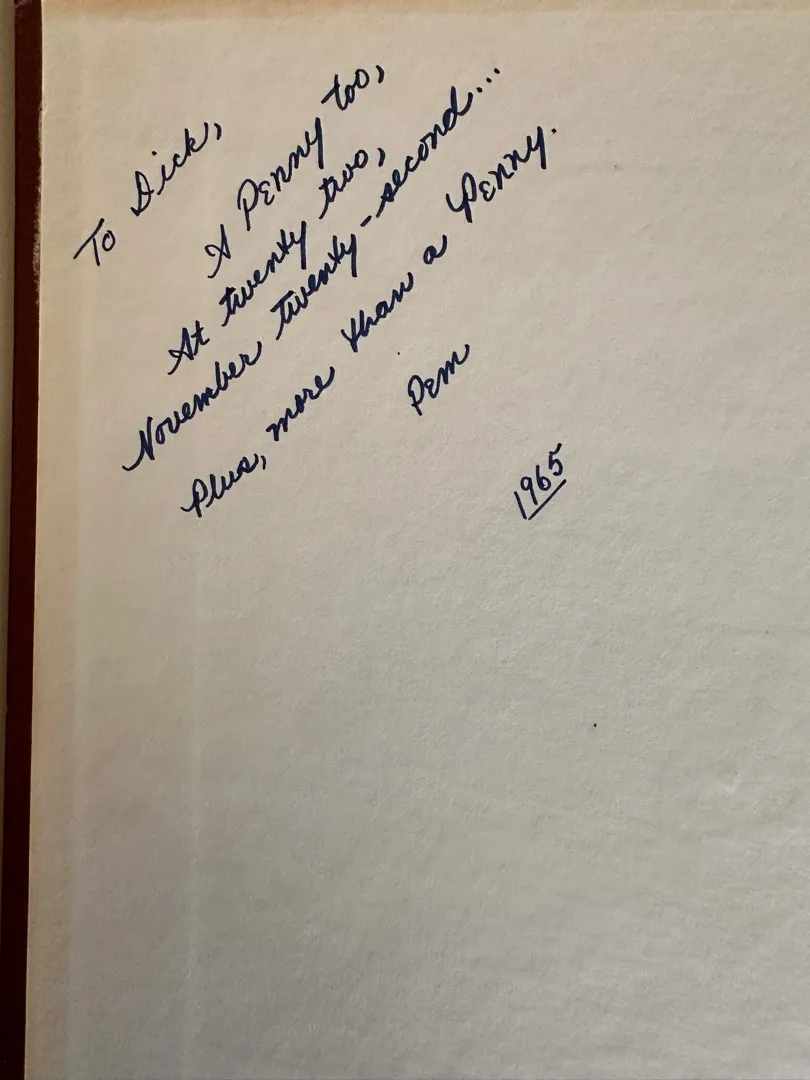 To Dick,
A Penny too,
At twenty two,
November twenty-second...
Plus, more than a Penny.
Pem
1965